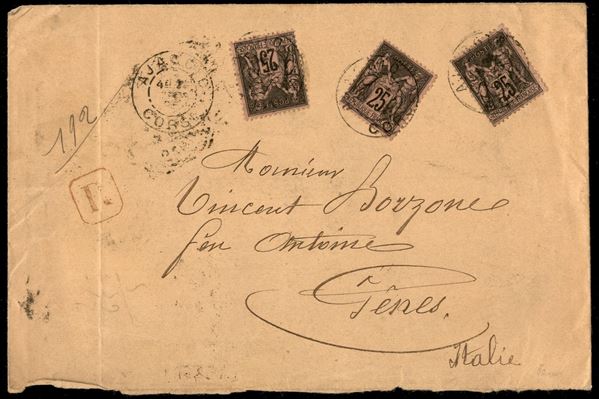 AJACCIO
CORSE
25
25
25
192
R
Monsieur
Vincent Borzone
feu Antoine
Gênes.
Italie